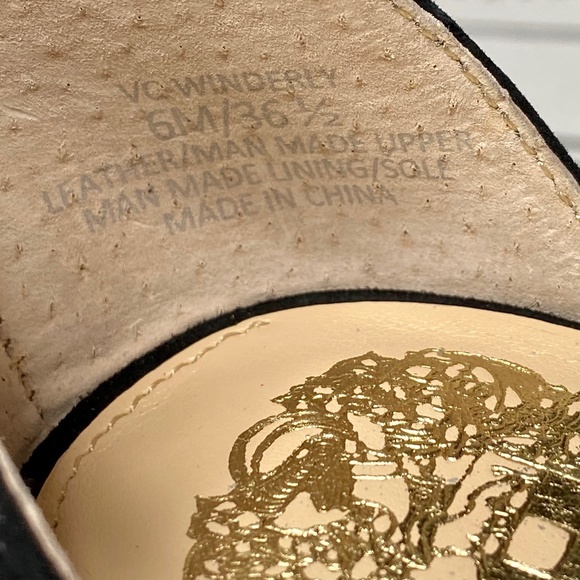 VC WINDERLY
6M/36 ½
LEATHER/MAN MADE UPPER
MAN MADE LINING/SOLE
MADE IN CHINA